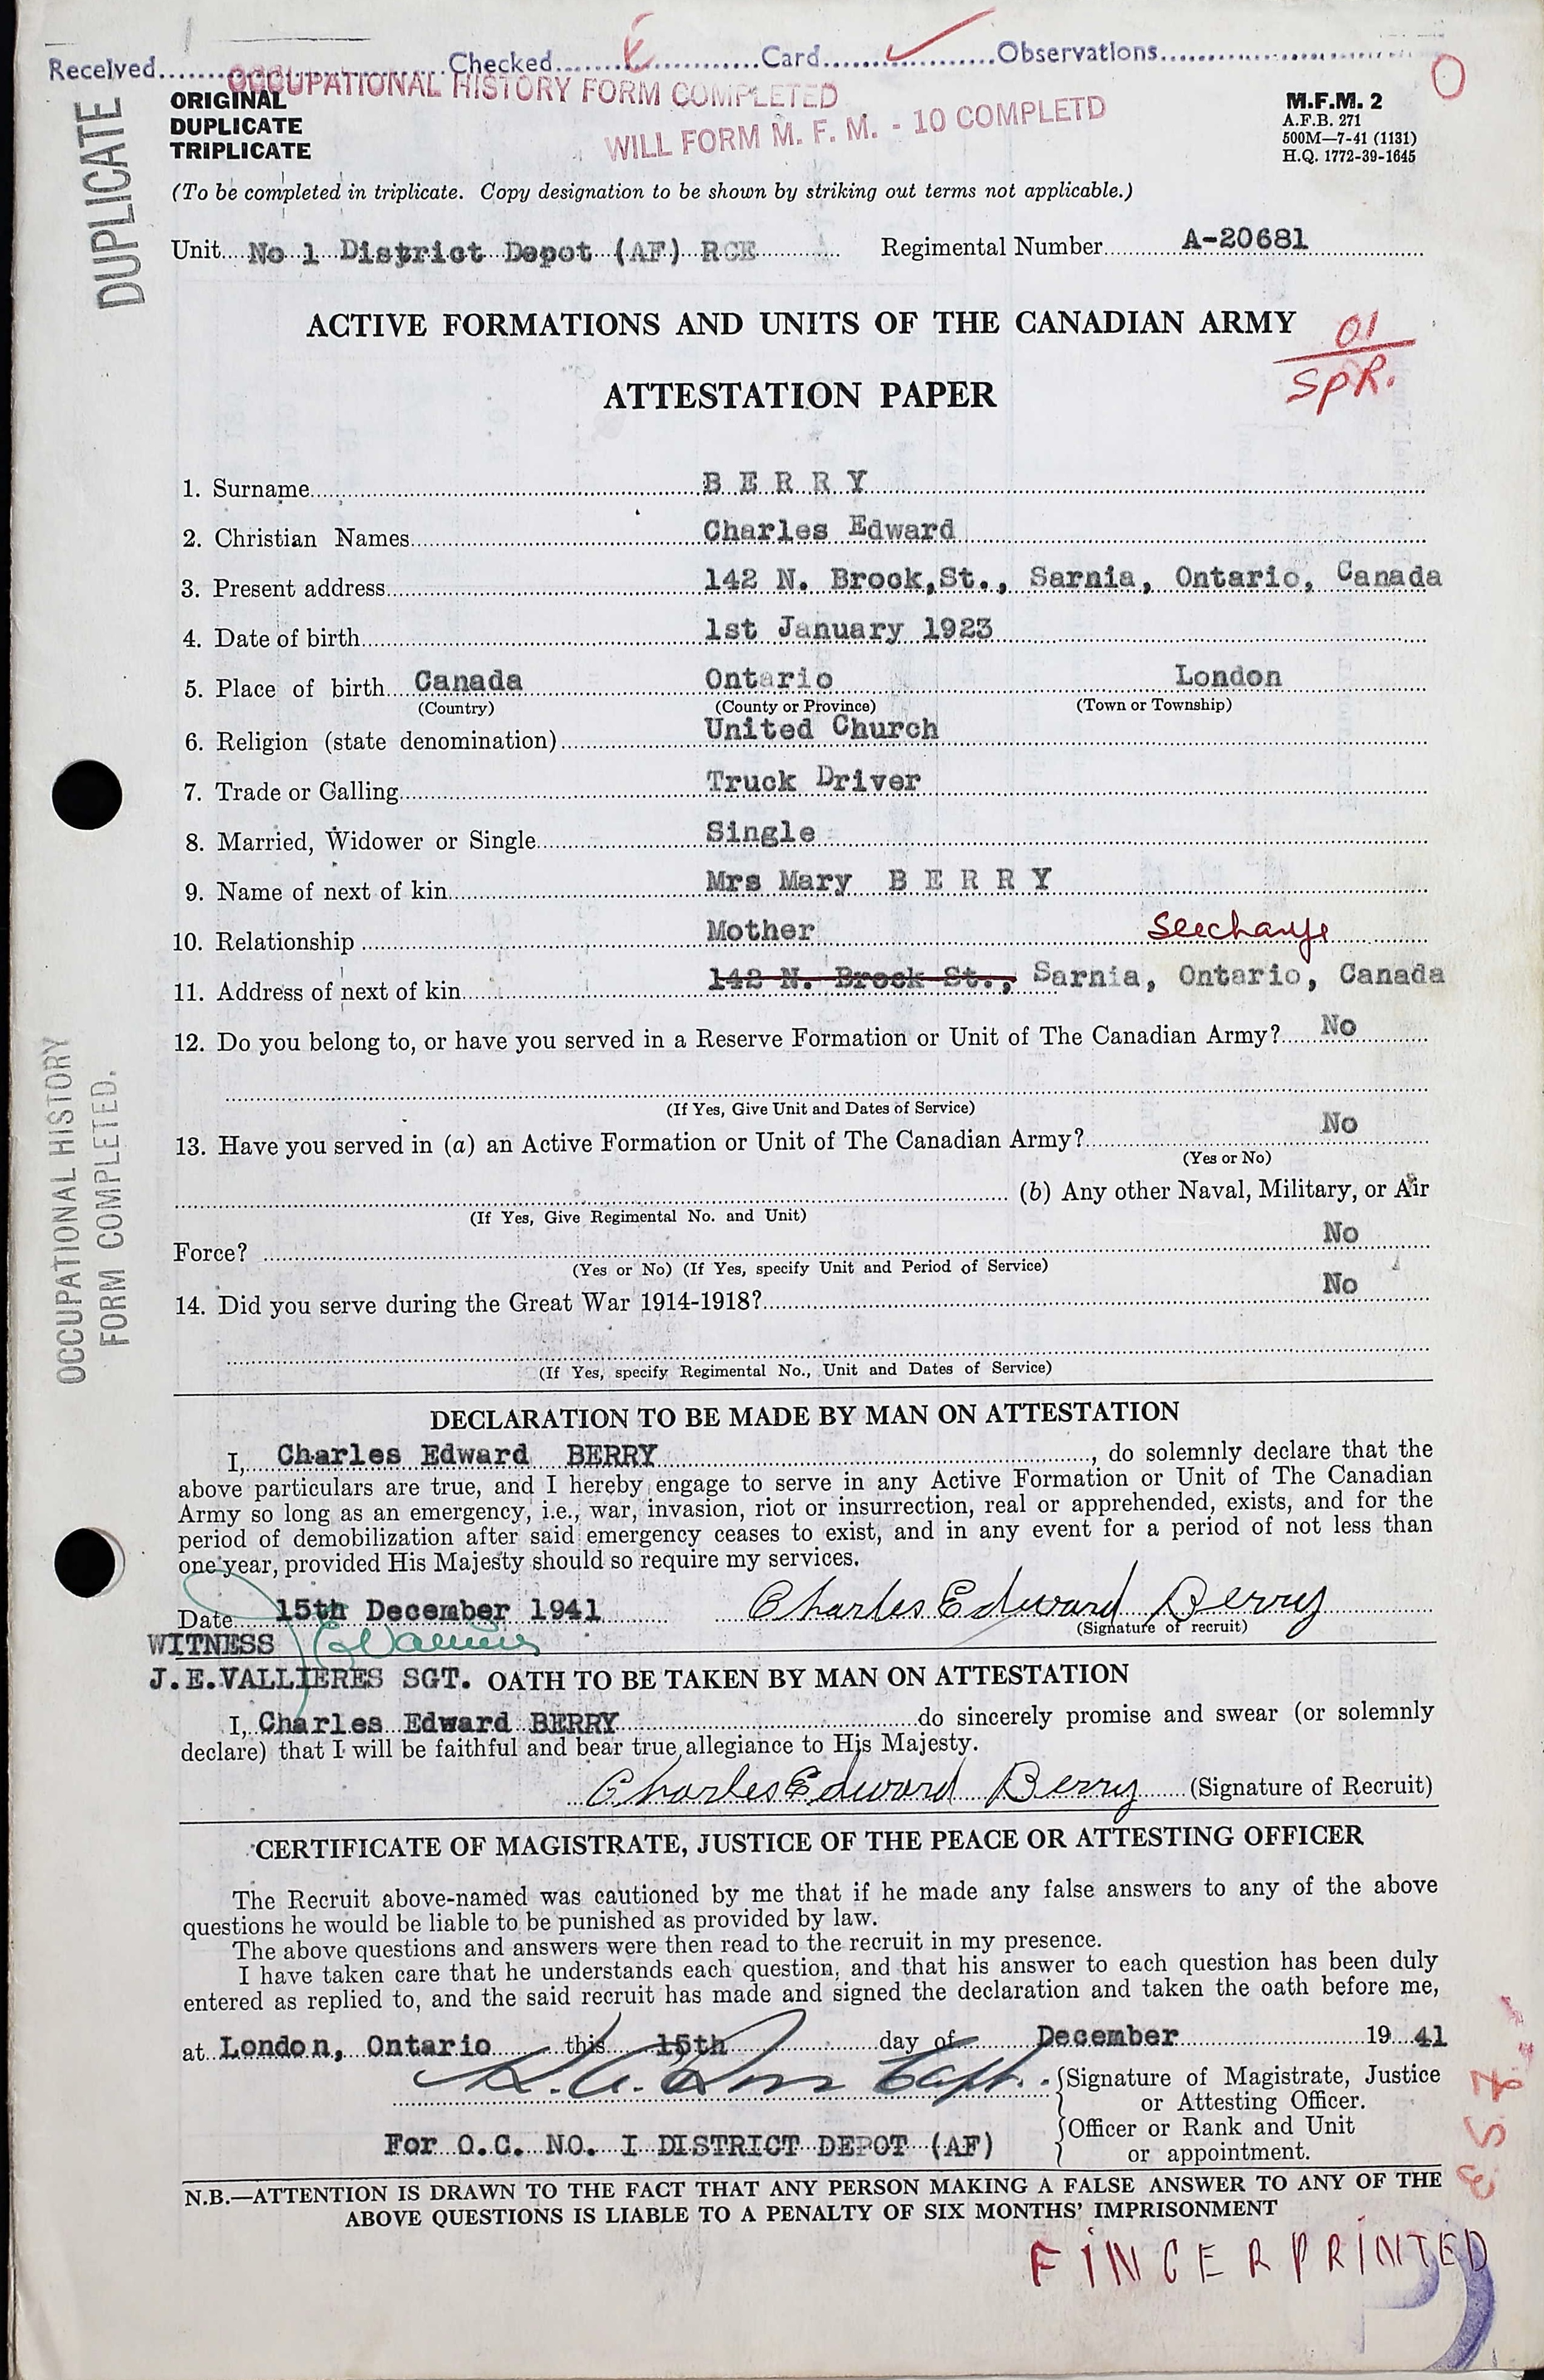 Received........Checked........E........Card........Observations........
OCCUPATIONAL HISTORY FORM COMPLETED
WILL FORM M. F. M. - 10 COMPLETD
O
DUPLICATE
ORIGINAL
DUPLICATE
TRIPLICATE
M.F.M. 2
A.F.B. 271
500M—7-41 (1131)
H.Q. 1772-39-1645
(To be completed in triplicate. Copy designation to be shown by striking out terms not applicable.)
Unit....No 1 District Depot (AF) RCE........ Regimental Number........A-20681
ACTIVE FORMATIONS AND UNITS OF THE CANADIAN ARMY
01
SPR.
ATTESTATION PAPER
1. Surname........B E R R Y
2. Christian Names........Charles Edward
3. Present address........142 N. Brock,St., Sarnia, Ontario, Canada
4. Date of birth........1st January 1923
5. Place of birth....Canada Ontario London
(Country) (County or Province) (Town or Township)
6. Religion (state denomination)........United Church
7. Trade or Calling........Truck Driver
8. Married, Widower or Single........Single
9. Name of next of kin........Mrs Mary B E R R Y
10. Relationship........Mother See change
11. Address of next of kin........142 N. Brock St., Sarnia, Ontario, Canada
12. Do you belong to, or have you served in a Reserve Formation or Unit of The Canadian Army?....No
(If Yes, Give Unit and Dates of Service)
13. Have you served in (a) an Active Formation or Unit of The Canadian Army?........No
(Yes or No)
(b) Any other Naval, Military, or Air
(If Yes, Give Regimental No. and Unit)
Force?........No
(Yes or No) (If Yes, specify Unit and Period of Service)
14. Did you serve during the Great War 1914-1918?........No
(If Yes, specify Regimental No., Unit and Dates of Service)
OCCUPATIONAL HISTORY
FORM COMPLETED.
DECLARATION TO BE MADE BY MAN ON ATTESTATION
I,....Charles Edward BERRY........, do solemnly declare that the
above particulars are true, and I hereby engage to serve in any Active Formation or Unit of The Canadian
Army so long as an emergency, i.e., war, invasion, riot or insurrection, real or apprehended, exists, and for the
period of demobilization after said emergency ceases to exist, and in any event for a period of not less than
one year, provided His Majesty should so require my services.
Date....15th December 1941 Charles Edward Berry
(Signature of recruit)
WITNESS
J.E.VALLIERES SGT. OATH TO BE TAKEN BY MAN ON ATTESTATION
I,..Charles Edward BERRY........do sincerely promise and swear (or solemnly
declare) that I will be faithful and bear true allegiance to His Majesty.
Charles Edward Berry (Signature of Recruit)
CERTIFICATE OF MAGISTRATE, JUSTICE OF THE PEACE OR ATTESTING OFFICER
The Recruit above-named was cautioned by me that if he made any false answers to any of the above
questions he would be liable to be punished as provided by law.
The above questions and answers were then read to the recruit in my presence.
I have taken care that he understands each question, and that his answer to each question has been duly
entered as replied to, and the said recruit has made and signed the declaration and taken the oath before me,
at..London, Ontario........this....15th........day of........December........19..41
Capt.
(Signature of Magistrate, Justice
or Attesting Officer.
(Officer or Rank and Unit
or appointment.
For O.C. NO. I DISTRICT DEPOT (AF)
N.B.—ATTENTION IS DRAWN TO THE FACT THAT ANY PERSON MAKING A FALSE ANSWER TO ANY OF THE
ABOVE QUESTIONS IS LIABLE TO A PENALTY OF SIX MONTHS' IMPRISONMENT
FINGERPRINTED